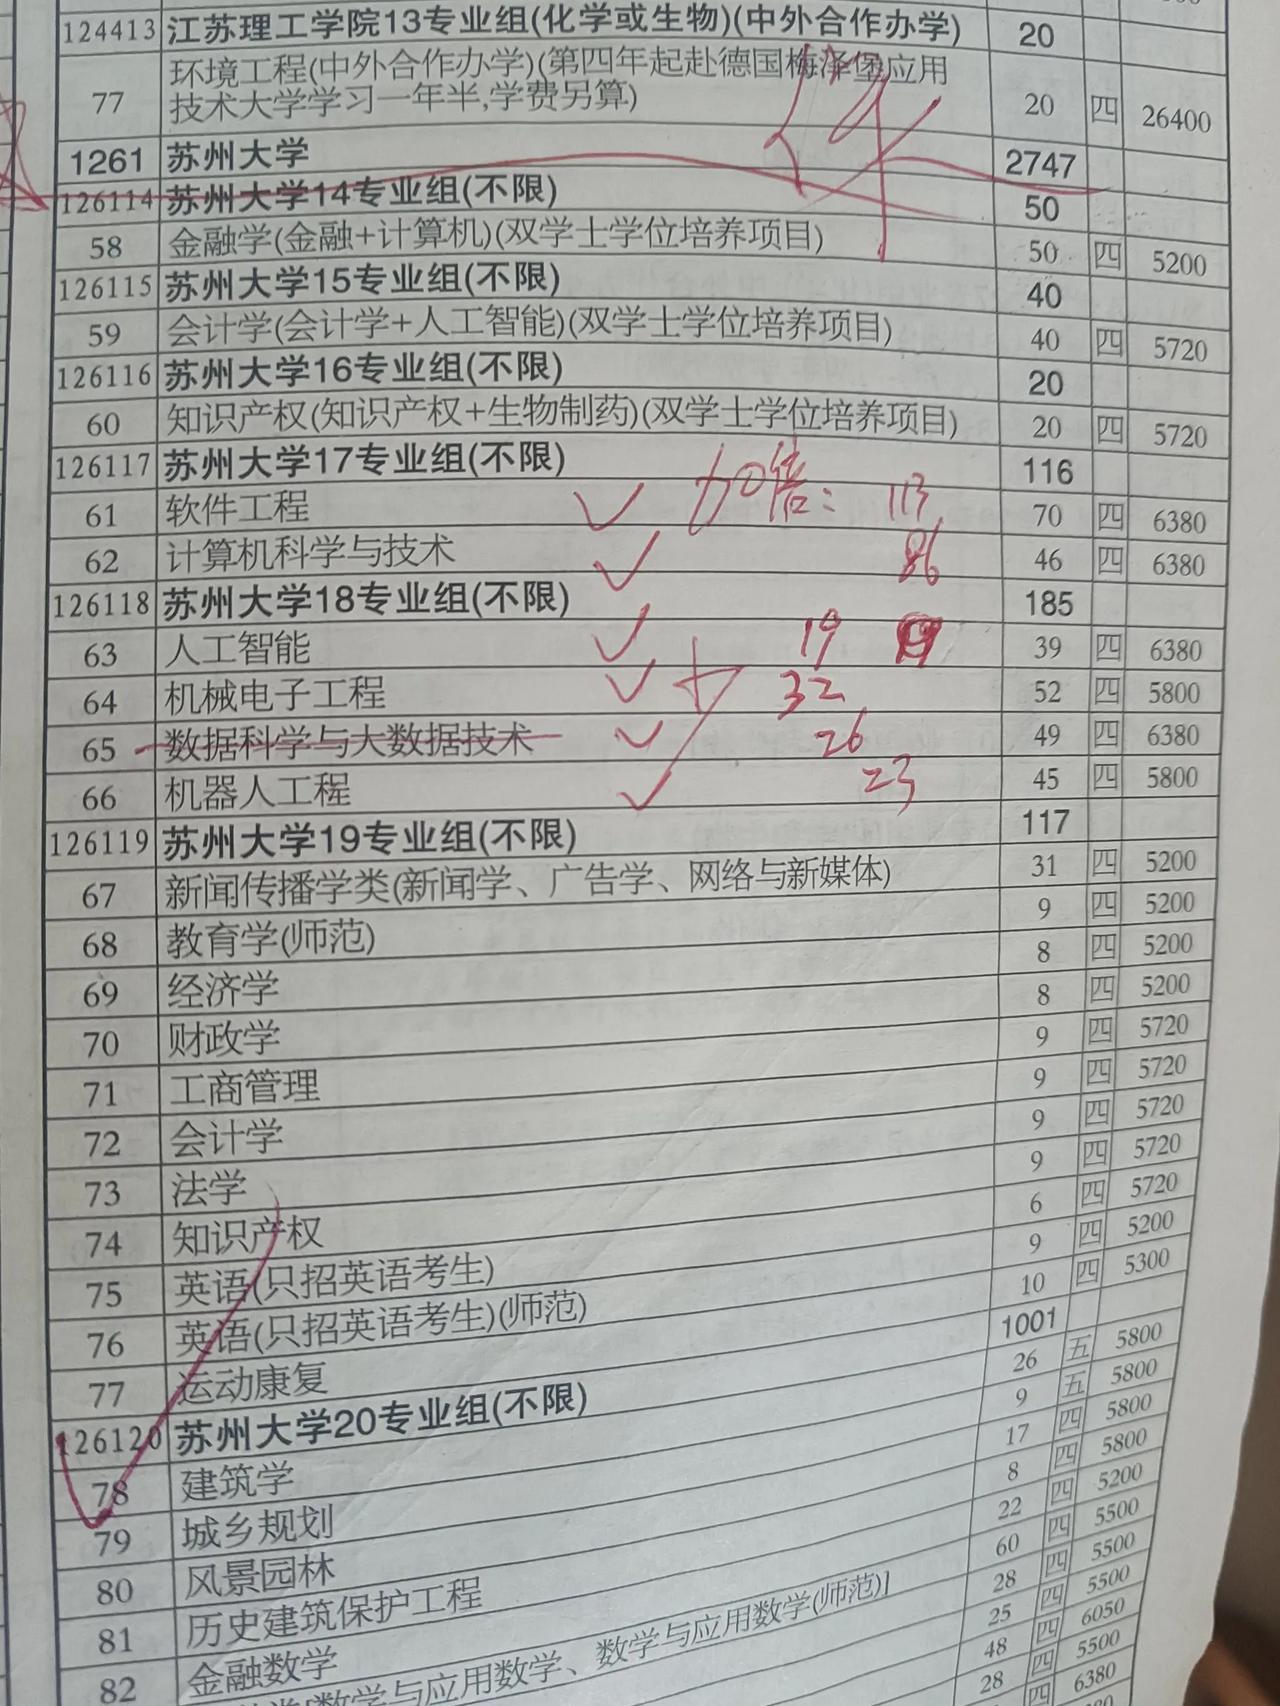 124413 江苏理工学院13专业组(化学或生物)(中外合作办学) 20
77 环境工程(中外合作办学)(第四年起赴德国梅泽堡应用
技术大学学习一年半,学费另算) 20 四 26400
1261 苏州大学 2747
126114 苏州大学14专业组(不限) 50
58 金融学(金融+计算机)(双学士学位培养项目) 50 四 5200
126115 苏州大学15专业组(不限) 40
59 会计学(会计学+人工智能)(双学士学位培养项目) 40 四 5720
126116 苏州大学16专业组(不限) 20
60 知识产权(知识产权+生物制药)(双学士学位培养项目) 20 四 5720
126117 苏州大学17专业组(不限) 116
61 软件工程 113 70 四 6380
62 计算机科学与技术 86 46 四 6380
126118 苏州大学18专业组(不限) 185
63 人工智能 19 39 四 6380
64 机械电子工程 32 52 四 5800
65 数据科学与大数据技术 26 49 四 6380
66 机器人工程 23 45 四 5800
126119 苏州大学19专业组(不限) 117
67 新闻传播学类(新闻学、广告学、网络与新媒体) 31 四 5200
68 教育学(师范) 9 四 5200
69 经济学 8 四 5200
70 财政学 8 四 5200
71 工商管理 9 四 5720
72 会计学 9 四 5720
73 法学 9 四 5720
74 知识产权 9 四 5720
75 英语(只招英语考生) 6 四 5720
76 英语(只招英语考生)(师范) 9 四 5200
77 运动康复 10 四 5300
126120 苏州大学20专业组(不限) 1001
78 建筑学 26 五 5800
79 城乡规划 9 五 5800
80 风景园林 17 四 5800
81 历史建筑保护工程 8 四 5800
82 金融数学 22 四 5200
数学与应用数学、数学与应用数学(师范)] 60 四 5500
28 四 5500
25 四 5500
48 四 6050
28 四 5500
6380